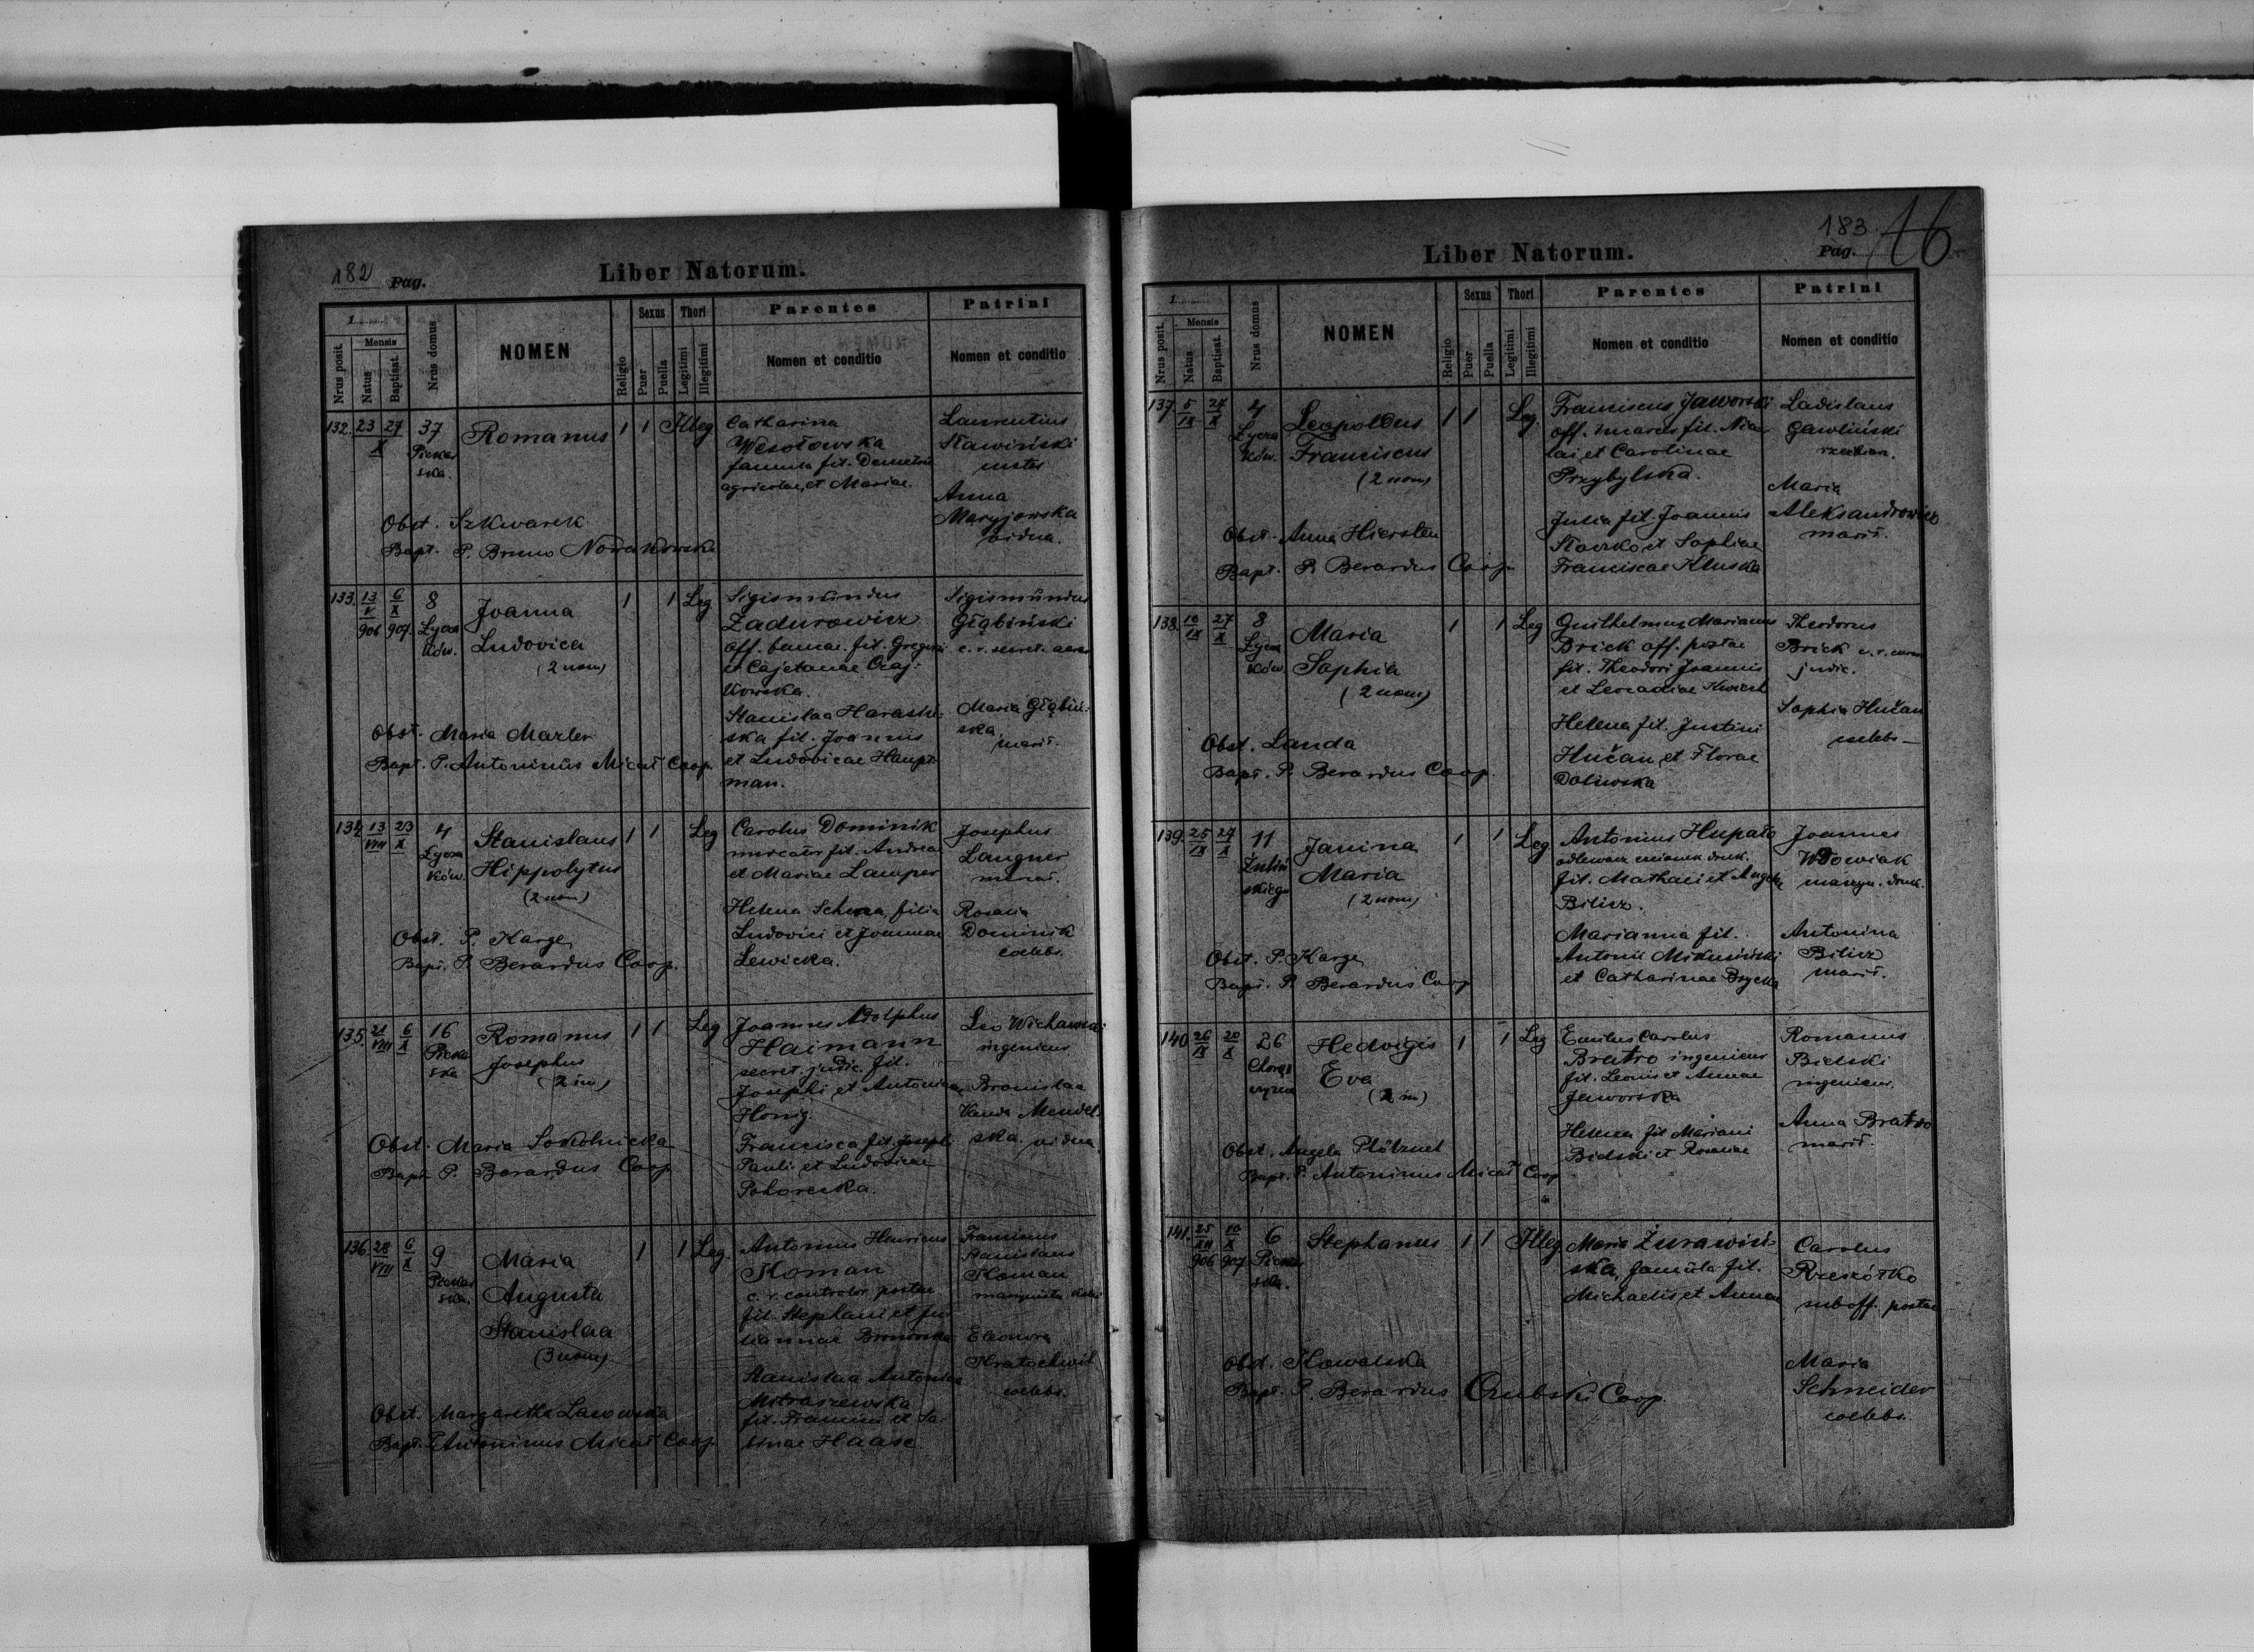 182 Pag.
Liber Natorum.
1
Nrus posit.
Mensis
Natus
Baptisat.
Nrus domus
NOMEN
Religio
Sexus
Puer
Puella
Thori
Legitimi
Illegitimi
Parentes
Nomen et conditio
Patrini
Nomen et conditio
132. 23 27 X
37
Piekar
ska.
Romanus
1 1 Illeg
Catharina
Wesołowska
famula fil. Demetrii
agricolae, et Mariae.
Laurentius
Stawiński
Anna
Maryjowska
vidua.
Obst. Szkwarek
Bapt. P. Bruno Nowakowski
133. 13/V 906 6/X 907.
8
Łycza
ków.
Joanna
Ludovica
(2 nom)
1 1 Leg
Sigismundus
Zadurowicz
fil. Gregorii
et Cajetanae Czaj-
kowska.
Stanislaa Harasim-
ska fil. Joannis
et Ludovicae Haupt-
man.
Sigismundus
Głąbiński
c. r. secret.
Maria Głąbiń-
ska
marit.
Obst. Maria Mazler
Bapt. P. Antoninus Micał Coop.
134. 13/VIII 23/X
4
Łycza
ków.
Stanislaus
Hippolytus
(2 nom)
1 1 Leg
Carolus Dominik
mercator fil. Andreae
et Mariae Lamper
Helena Scherea, filia
Ludovici et Joannae
Lewicka.
Josephus
Langner
Rosalia
Dominik
coelebs.
Obst. P. Karge
Bapt. P. Berardus Coop.
135. 21/VIII 6/X
16
Pieka
ska
Romanus
Josephus
(2 im)
1 1 Leg
Joannes Adolphus
Haimann
secret. judic. fil.
Josephi et Antoninae
Honig.
Francisca fil. Josephi
Pauli et Ludovicae
Pohorecka.
Leo Wichawski
ingenieur
Bronislaa
Vanda Mendel-
ska. vidua
Obst. Maria Sokolnicka
Bapt. P. Berardus Coop
136. 28/VIII 6/X
9
Piekar
ska.
Maria
Augusta
Stanislaa
(3 nom)
1 1 Leg.
Antonius Henricus
Koman
c. r. controlor postae
fil. Stephani et Ju-
liannae Bronowska
Stanislaa Antonina
Mitraszewska
fil. Francisci et Sa-
binae Haase
Franciscus
Stanislaus
Koman
Eleonora
Kratochwil
coelebs.
Obst. Margaretha Lasowska
Bapt. P. Antoninus Micał Coop.
183. 16
Pag.
Liber Natorum.
1
Nrus posit.
Mensis
Natus
Baptisat.
Nrus domus
NOMEN
Religio
Sexus
Puer
Puella
Thori
Legitimi
Illegitimi
Parentes
Nomen et conditio
Patrini
Nomen et conditio
137. 5/IX 27/X
4
Łycza
ków.
Leopoldus
Franciscus
(2 nom)
1 1 Leg.
Franciscus Jaworski
off. fil. Nico-
lai et Carolinae
Przybylska.
Julia fil. Joannis
Staszko, et Sophiae
Franciscae Kluska
Ladislaus
Gawliński
Maria
Aleksandrowicz
marit.
Obst. Anna Hiersten
Bapt. P. Berardus Coop.
138. 10/IX 27/X
8
Łycza
ków.
Maria
Sophia
(2 nom)
1 1 Leg
Guilhelmus Marianus
Brick off. postae
fil. Theodori Joannis
et Leocadiae
Helena fil. Justini
Hučan, et Florae
Doliwska
Theodorus
Brick c. r.
judic.
Sophia Hučan
coelebs
Obst. Landa
Bapt. P. Berardus Coop.
139. 25/IX 27/X
11
Żuliń
skiego
Janina
Maria
(2 nom)
1 1 Leg.
Antonius Hupało
odlewacz czcionek druk.
fil. Mathaei et Angelae
Bilicz.
Marianna fil.
Antonii Mikusiński
et Catharinae Bzycka
Joannes
Wdowiak
maszyn. druk.
Antonina
Bilicz
marit.
Obst. P. Karge
Bapt. P. Berardus Coop
140. 26/IX 20/X
26
Chorąż
czyzna
Hedvigis
Eva
(2 im)
1 1 Leg
Emilus Carolus
Bratro ingenieur
fil. Leonis et Annae
Jaworska
Helena fil Mariani
Bielski et Rosaliae
Romanus
Bielski
ingenieur.
Anna Bratro
marit.
Obst. Angela Plötznet
Bapt. P. Antoninus Micał Coop
141. 25/XII 906 10/X 907
6
Piekar
ska.
Stephanus
1 1 Illeg
Maria Żurawiń-
ska, famula fil.
Michaelis, et Annae
Carolus
Rzeszótko
suboff. postae
Maria
Schneider
coelebs.
Obst. Kowalska
Bapt. P. Berardus Czubski Coop.